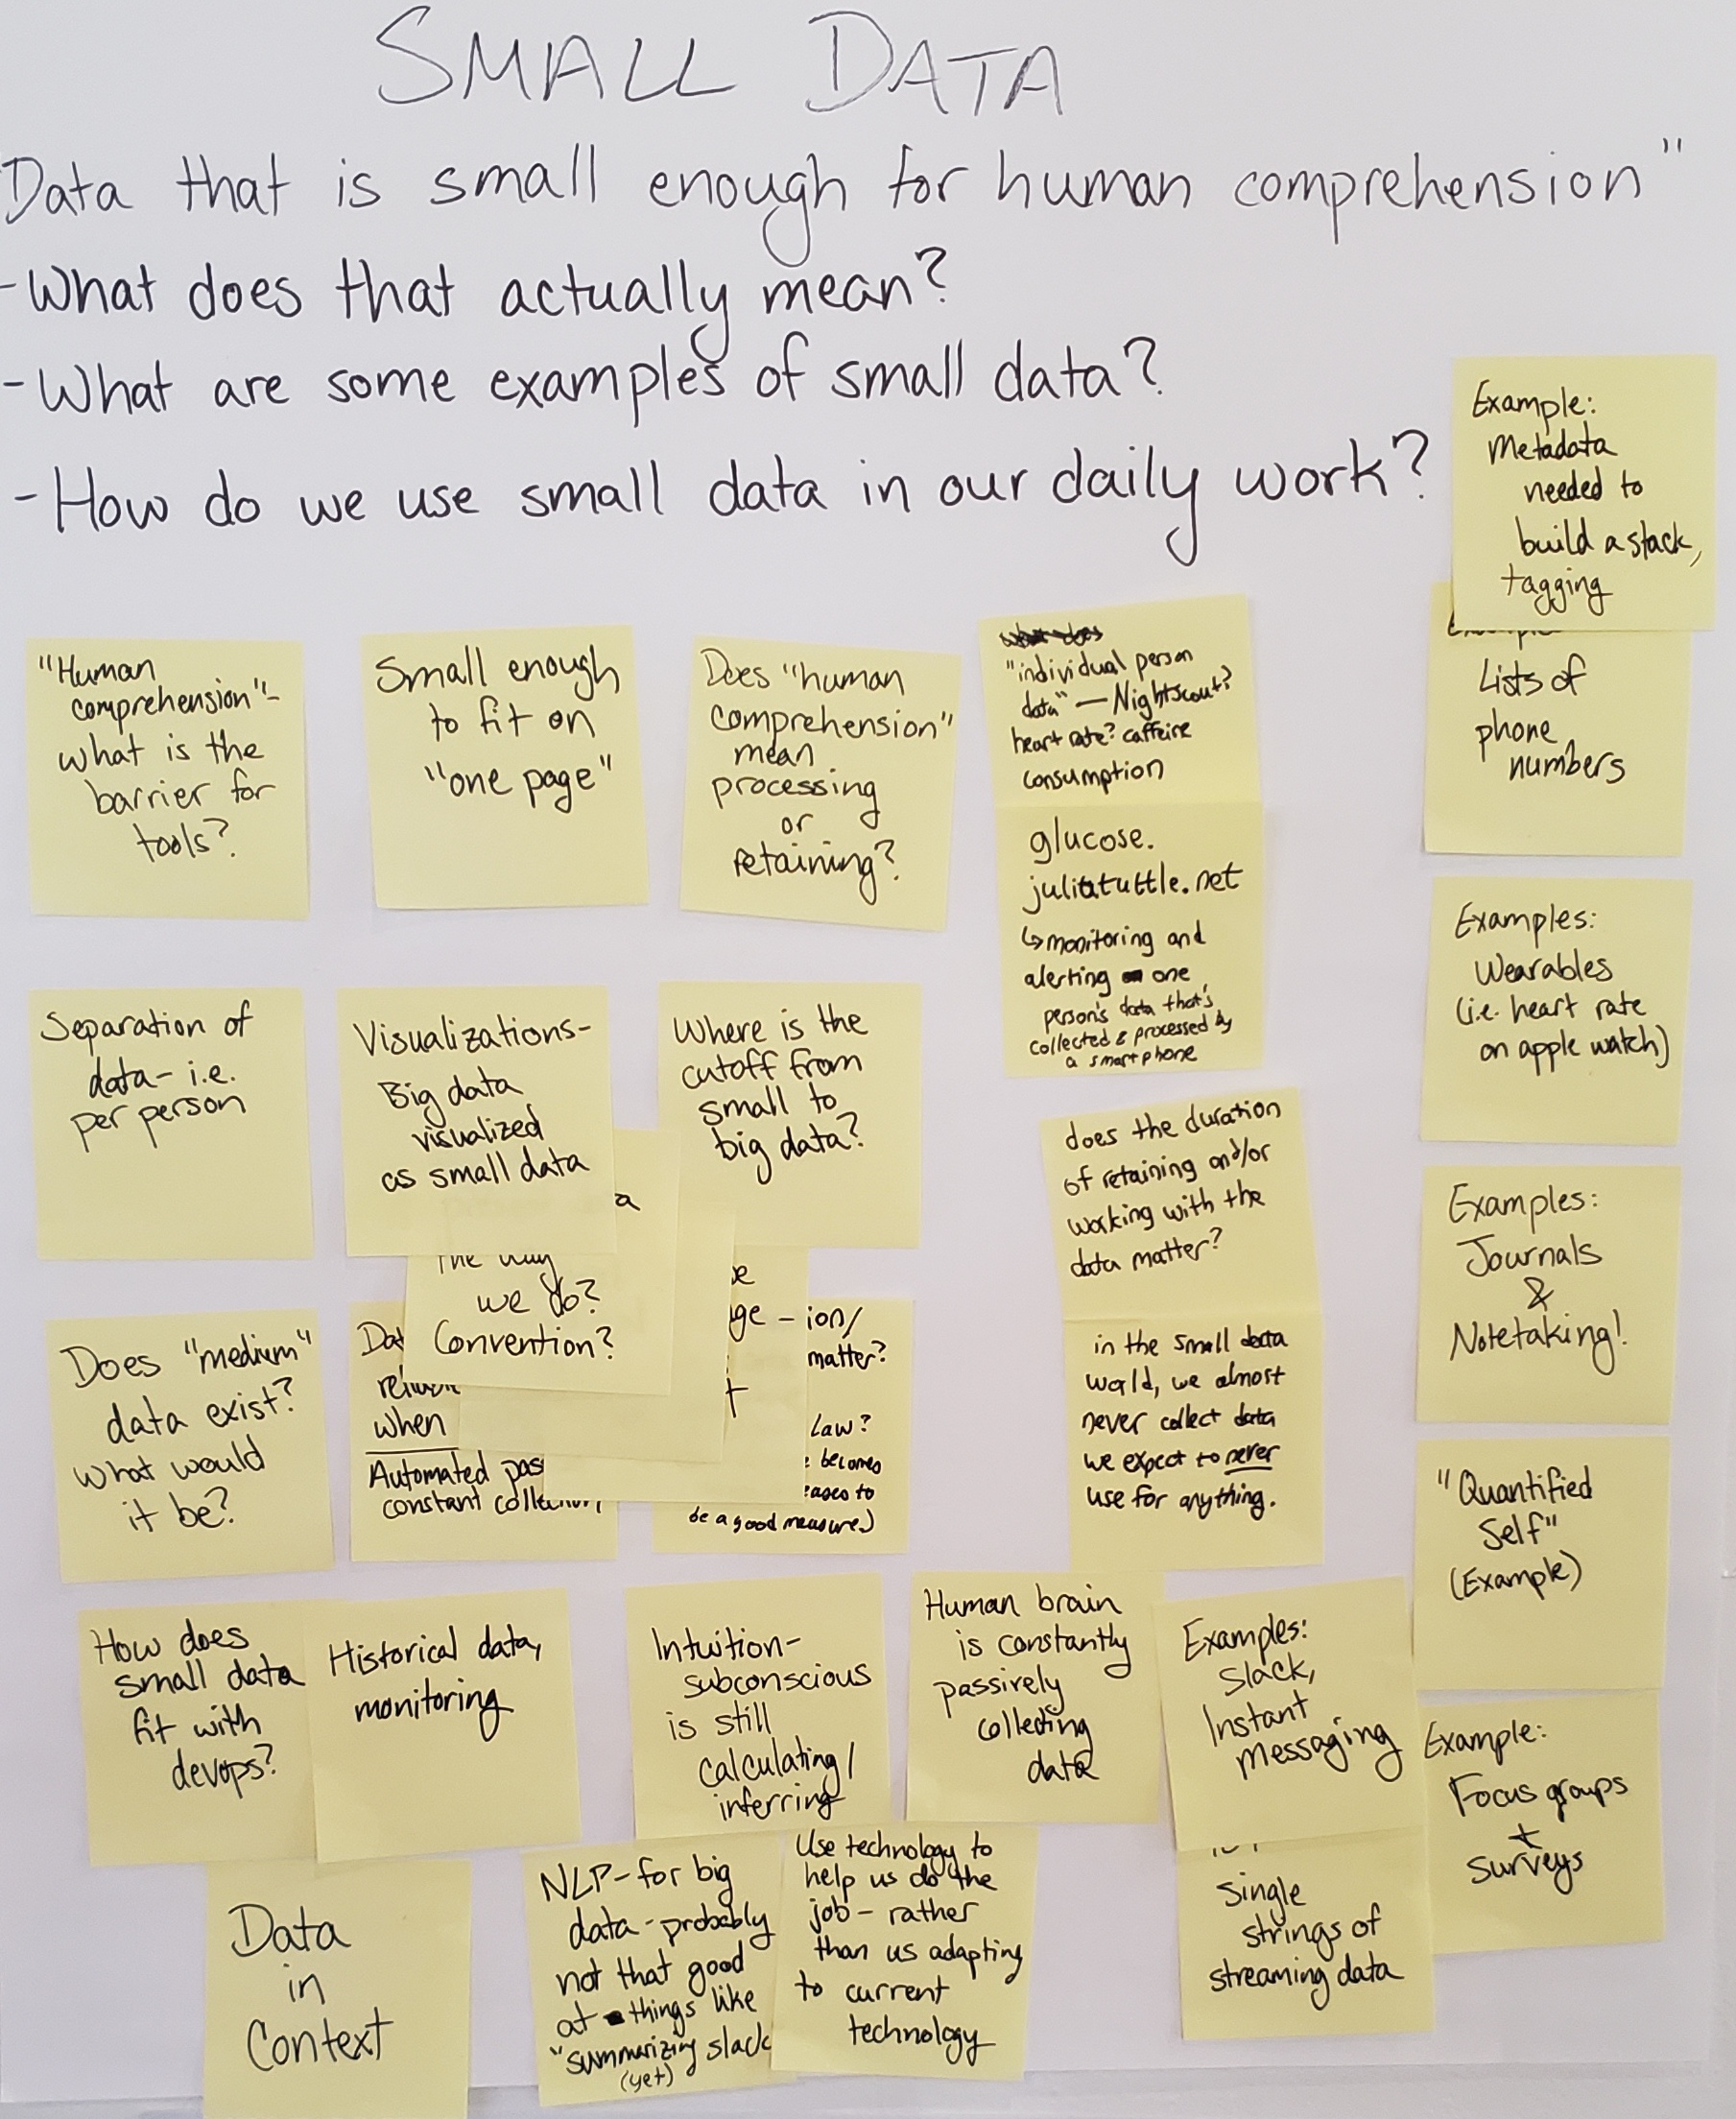 SMALL DATA
Data that is small enough for human comprehension"
-What does that actually mean?
-What are some examples of small data?
-How do we use small data in our daily work?
Example:
Metadata
needed to
build a stack,
tagging
"Human
comprehension"-
what is the
barrier for
tools?
Small enough
to fit on
"one page"
Does "human
comprehension"
mean
processing
or
retaining?
"individual person
data" — Nightscout?
heart rate? caffeine
consumption
Lists of
phone
numbers
glucose.
juliatuttle.net
↳monitoring and
alerting one
person's data that's
collected & processed by
a smartphone
Examples:
Wearables
(i.e. heart rate
on apple watch)
Separation of
data- i.e.
per person
Visualizations-
Big data
visualized
as small data
Where is the
cutoff from
small to
big data?
does the duration
of retaining and/or
working with the
data matter?
Examples:
Journals
&
Notetaking!
a
The way
we do?
Convention?
Does "medium"
data exist?
what would
it be?
when
Automated
constant
ion/
matter?
Law?
becomes
to
be a good measure.)
in the small data
world, we almost
never collect data
we expect to never
use for anything.
"Quantified
Self"
(Example)
How does
small data
fit with
devops?
Historical data,
monitoring
Intuition-
subconscious
is still
calculating/
inferring
Human brain
is constantly
passively
collecting
data
Examples:
Slack,
Instant
messaging
Example:
Focus groups
+
surveys
Data
in
Context
NLP-for big
data-probably
not that good
at things like
"summarizing slack
(yet)
Use technology to
help us do the
job - rather
than us adapting
to current
technology
single
strings of
streaming data